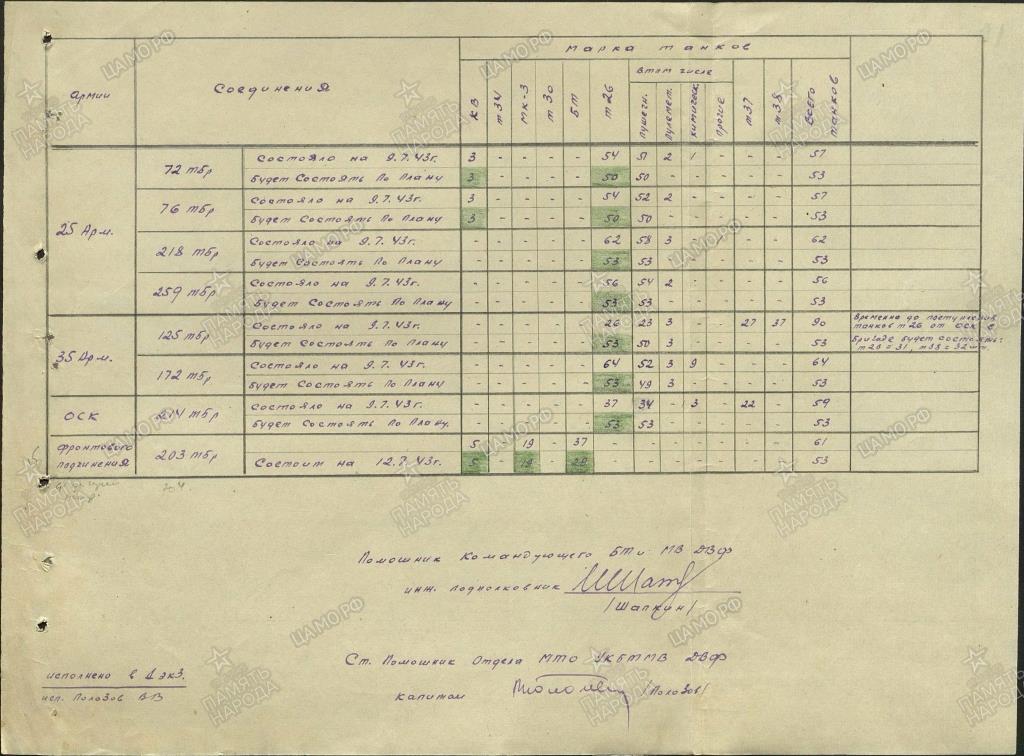 марка танков
Армии Соединения КВ Т34 МК-3 Т30 БТ Т26 в том числе Т37 Т38 Всего танков
пушечн. пулемет. химическ. прочие
25 Арм. 72 тбр Состояло на 9.7.43г. 3 - - - - 54 51 2 1 - - - 57
Будет Состоять По Плану 3 - - - - 50 50 - - - - - 53
76 тбр Состояло на 9.7.43г. 3 - - - - 54 52 2 - - - - 57
Будет Состоять По Плану 3 - - - - 50 50 - - - - - 53
218 тбр Состояло на 9.7.43г. - - - - - 62 58 3 - - - - 62
Будет Состоять По Плану - - - - - 53 53 - - - - - 53
259 тбр Состояло на 9.7.43г. - - - - - 56 54 2 - - - - 56
Будет Состоять По Плану - - - - - 53 53 - - - - - 53
35 Арм. 125 тбр Состояло на 9.7.43г. - - - - - 26 23 3 - - 27 37 90 Временно до поступления
танков т26 от ОСК в
Будет Состоять По Плану - - - - - 53 50 3 - - - - 53 бригаде будет состоять:
172 тбр Состояло на 9.7.43г. - - - - - 64 52 3 9 - - - 64
Будет Состоять По Плану - - - - - 53 49 3 - - - - 53
ОСК 214 тбр Состояло на 9.7.43г. - - - - - 37 34 - 3 - 22 - 59
Будет Состоять По Плану. - - - - - 53 53 - - - - - 53
фронтового подчинения 203 тбр 5 - 19 - 37 - - - - - - - 61
Состоит на 12.7.43г. 5 - 19 - 29 - - - - - - - 53
Помошник Командующего БТ и МВ ДВФ
инж. подполковник
/Шапкин/
Ст. Помошник Отдела МТО УКБТМВ ДВФ
капитан /Полозов/
исполнено в 1 экз.
исп. Полозов ВВ
ЦАМО.РФ
ПАМЯТЬ НАРОДА